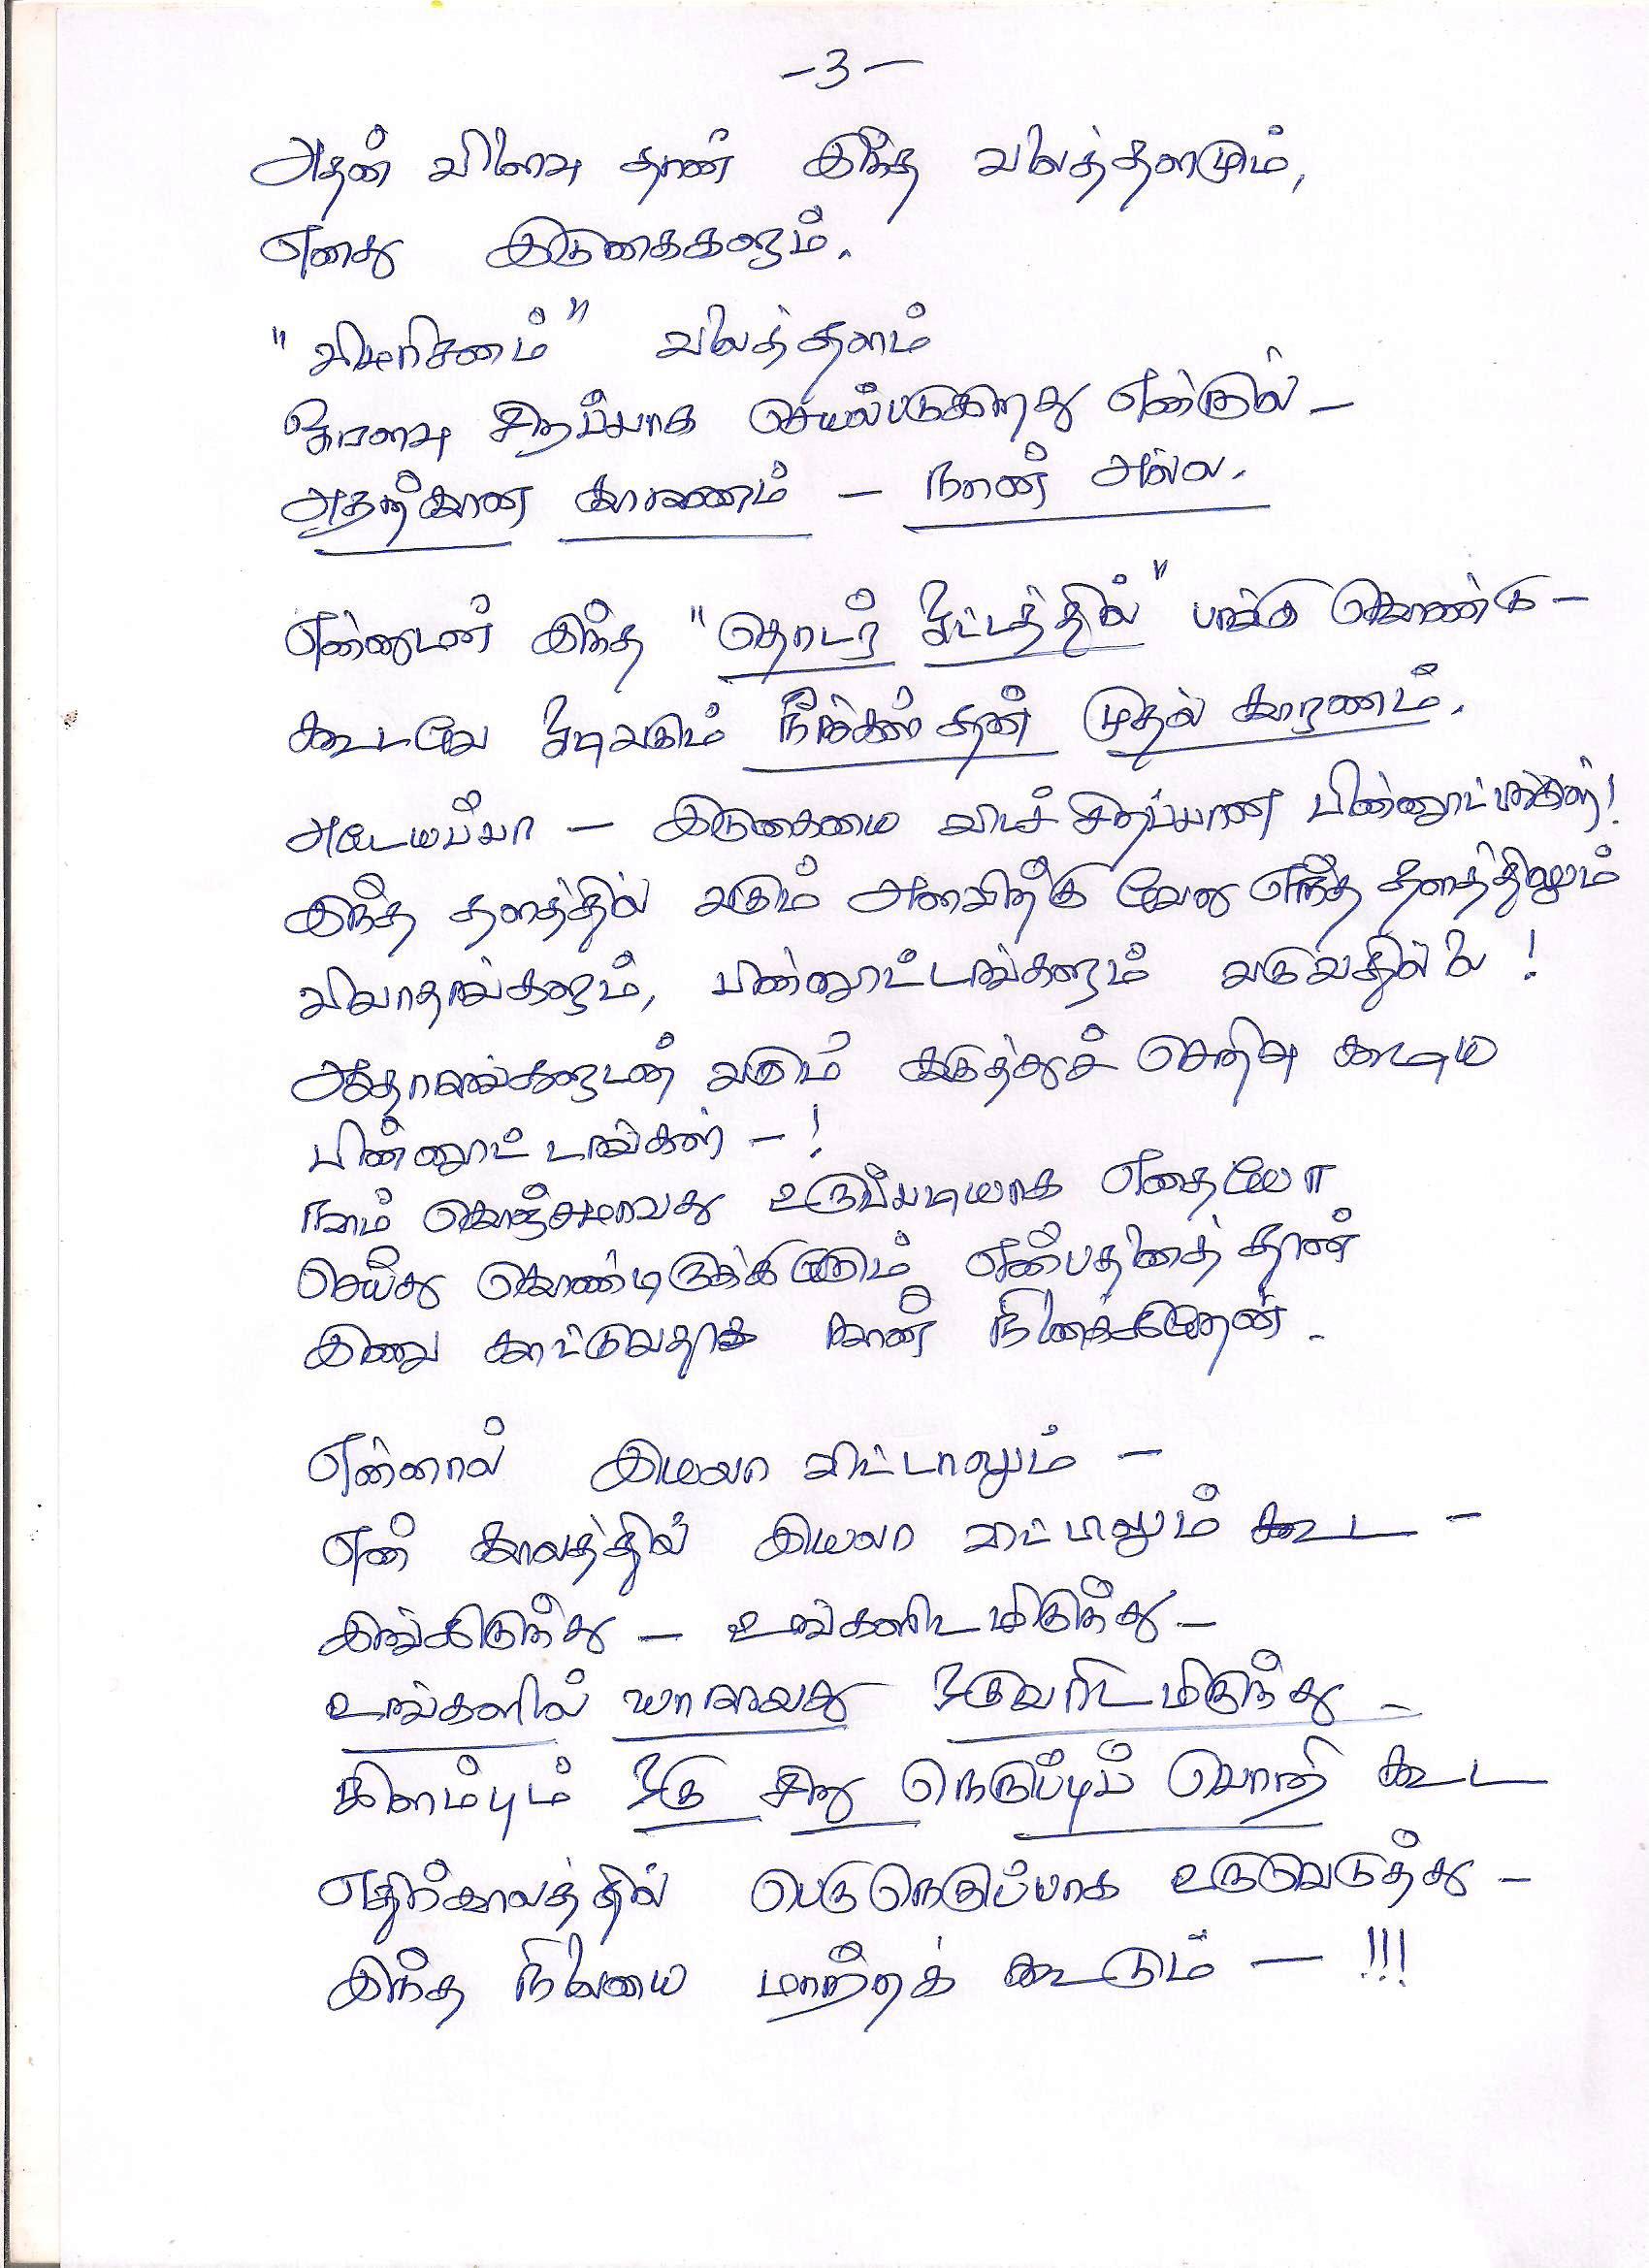 -3-
அதன் விளைவு தான் இந்த வலைத்தளமும்,
எனது இடுகைகளும்.
"விமரிசனம்" வலைத்தளம்
ஓரளவு சிறப்பாக செயல்படுகிறது என்றால் -
அதற்கான காரணம் - நான் அல்ல.
என்னுடன் இந்த "தொடர் ஓட்டத்தில்" பங்கு கொண்டு -
கூடவே ஓடிவரும் நீங்கள் தான் முதல் காரணம்.
அடேயப்பா - இடுகையை விடச் சிறப்பான பின்னூட்டங்கள்!
இந்த தளத்தில் வரும் அளவிற்கு வேறு எந்த தளத்திலும்
விவாதங்களும், பின்னூட்டங்களும் வருவதில்லை!
ஆதாரங்களுடன் வரும் கருத்துச் செறிவு கூடிய
பின்னூட்டங்கள் - !
நாம் கொஞ்சமாவது உருப்படியாக எதையோ
செய்து கொண்டிருக்கிறோம் என்பதனைத் தான்
இது காட்டுவதாக நான் நினைக்கிறேன்.
என்னால் இயலா விட்டாலும் -
என் காலத்தில் இயலா விட்டாலும் கூட -
இங்கிருந்து - உங்களிடமிருந்து -
உங்களில் யாராவது ஒருவரிடமிருந்து -
கிளம்பும் ஒரு சிறு நெருப்புப் பொறி கூட
எதிர்காலத்தில் பெருநெருப்பாக உருவெடுத்து -
இந்த நிலையை மாற்றக் கூடும் - !!!